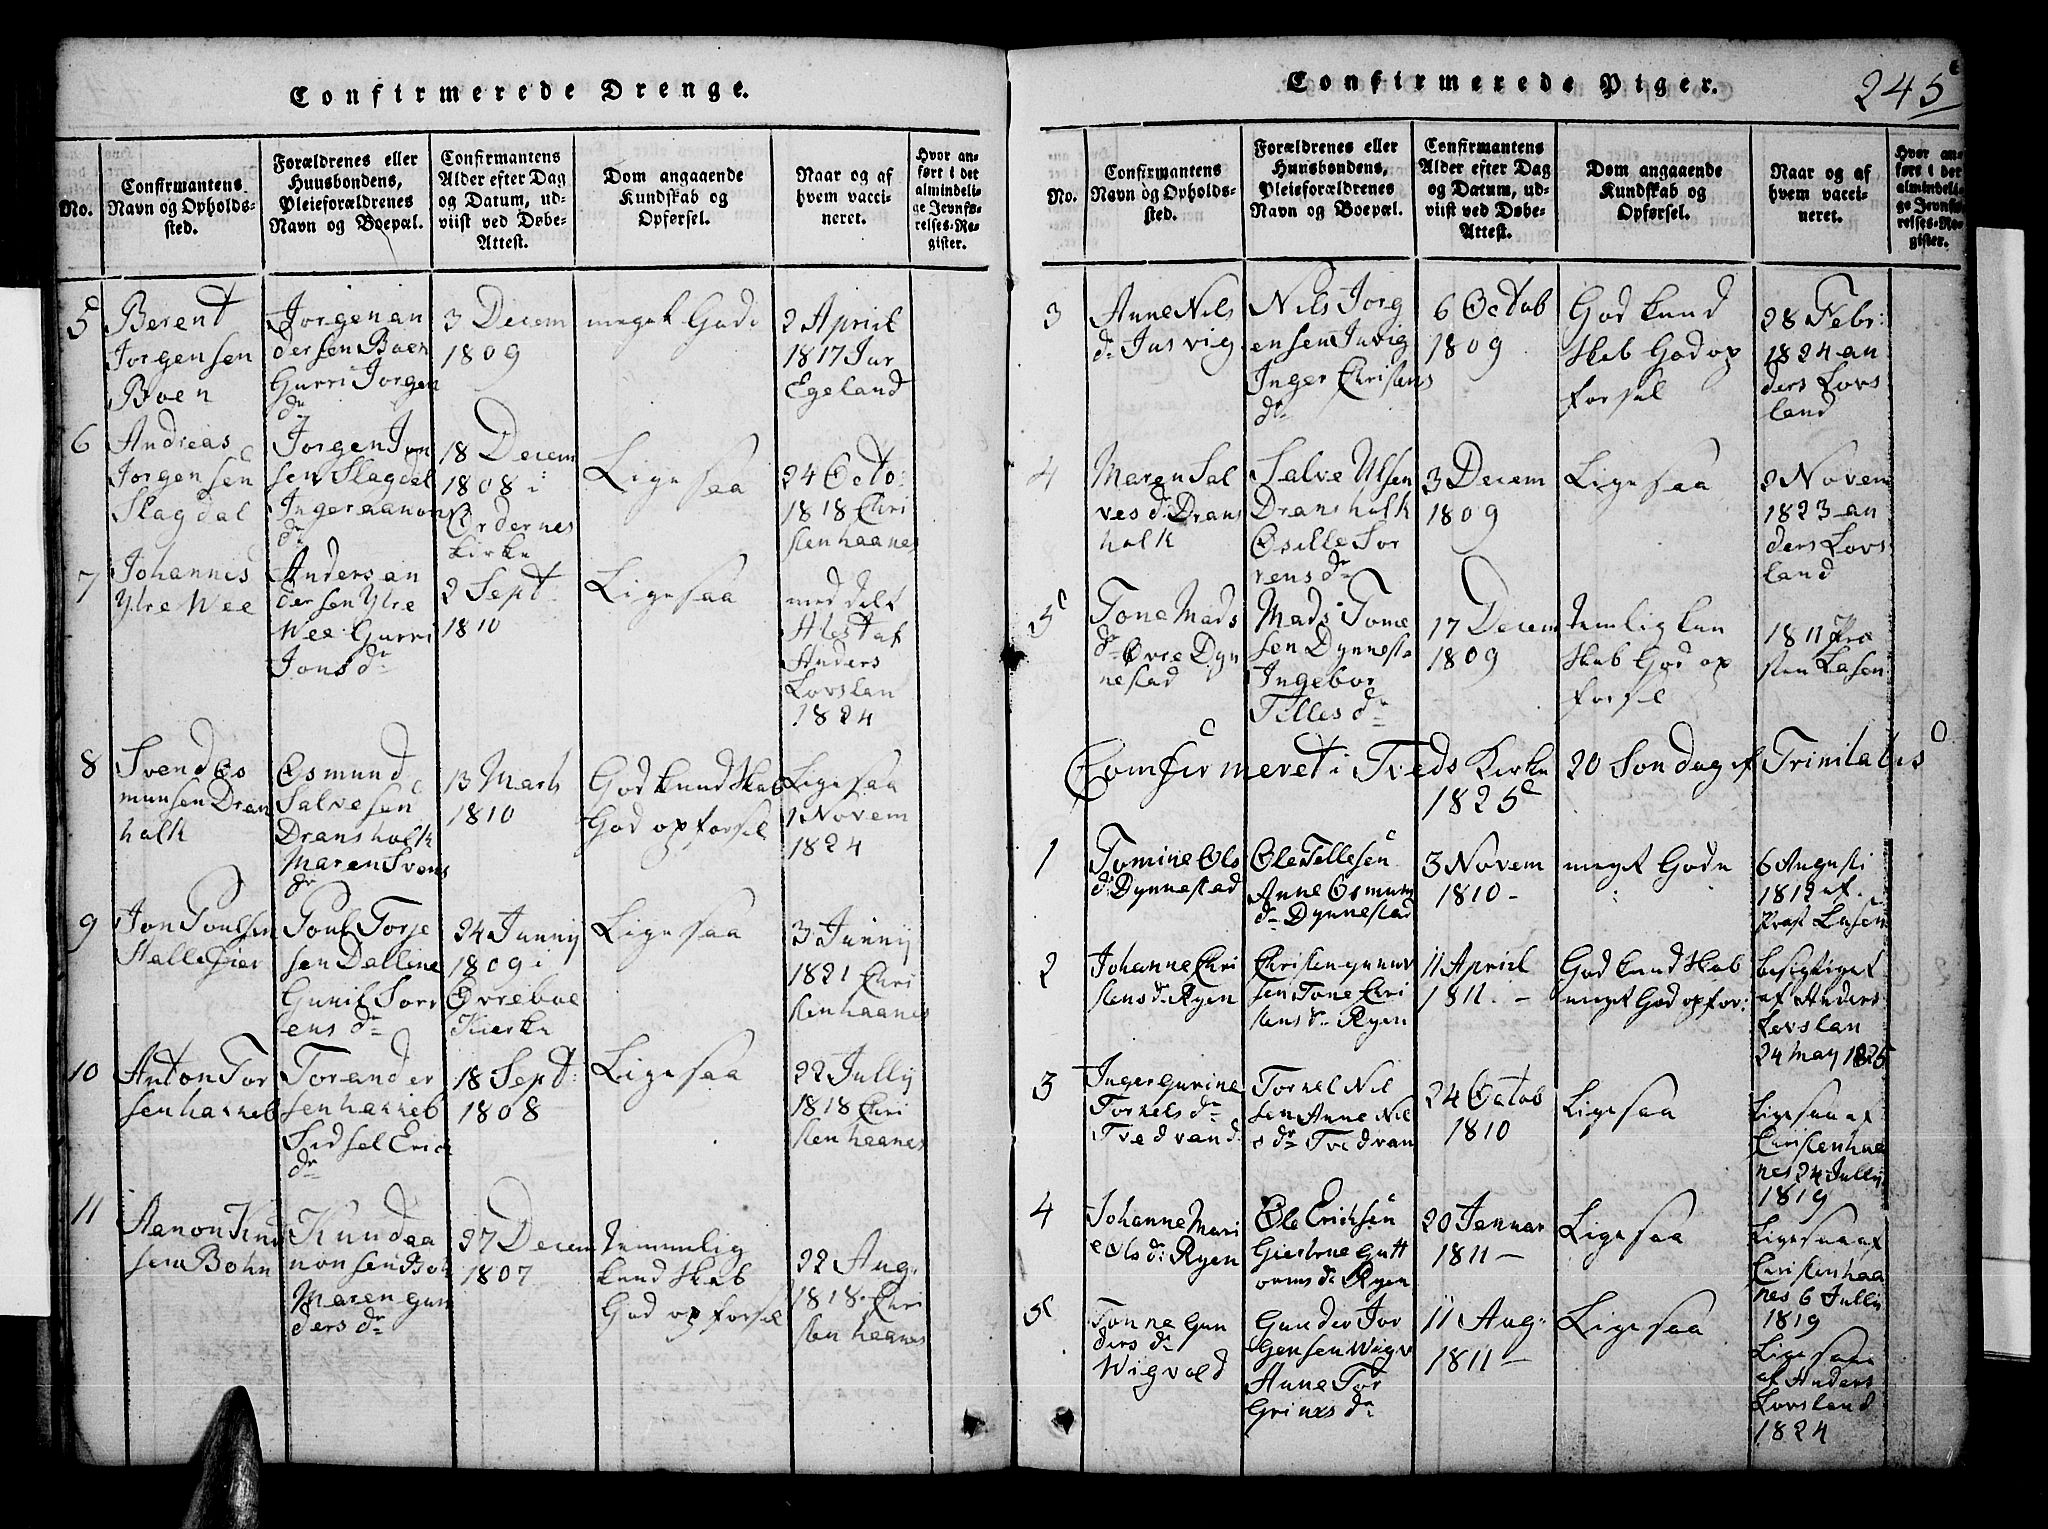 Confirmerede Drenge.
No.
Confirmantens
Navn og Opholds-
sted.
Forældrenes eller
Huusbondens,
Pleieforældrenes
Navn og Boepæl.
Confirmantens
Alder efter Dag
og Datum, ud-
viist ved Døbe-
Attest.
Dom angaaende
Kundskab og
Opførsel.
Naar og af
hvem vacci-
neret.
Hvor an-
ført i det
almindeli-
ge Jevnfø-
relses-Re-
gister.
5
Berent
Jorgensen
Boen
Jorgen an
dersen Boen
Gurri Jorgen
dr
3 Decem
1809
meget Godt
2 April
1817 Jur
Egeland
6
Andreas
Jorgensen
Slagdal
Jorgen Jon
sen Slagdal
Inger aanon
dr
18 Decem
1808 i
Oddernes
Kirke
Ligesaa
24 Octo:
1818 Chri
sten haanes
7
Johannes
Ytre Wee
Anders an
dersen Ytre
Wee Gurri
Jons dr
2 Sept
1810
Ligesaa
med delt
Atest af
Anders
Lovslan
1824
8
Svend Os
munsen Dran
holk
Osmund
Salvesen
Dransholk
Maren Svens
dr
13 Marts
1810
God kundskab
God opforsel
Ligesaa
1 Novem
1824
9
Jon Poulsen
Stallegier
Poul Torje
sen Dalline
Gunil Sorr
ens dr
24 Junny
1809 i
Øvreboe
Kierke
Ligesaa
3 Junny
1821 Chri
sten haanes
10
Anton Tor
sen hakkeb
Tor ander
sen hakkeb
Sidsel Eric
dr
18 Sept:
1808
Ligesaa
22 Jully
1818 Chri
sten haanes
11
Aanon Knud
sen Bohn
Knud aa
nonsen Boh
Maren gun
ders dr
27 Decem
1807
temmelig
kundskab
God opforsel
22 Aug:
1818 Chri
sten haanes
Confirmerede Piger.
245
No.
Confirmantens
Navn og Opholds-
sted.
Forældrenes eller
Huusbondens,
Pleieforældrenes
Navn og Boepæl.
Confirmantens
Alder efter Dag
og Datum, ud-
viist ved Døbe-
Attest.
Dom angaaende
Kundskab og
Opførsel.
Naar og af
hvem vacci-
neret.
Hvor an-
ført i det
almindeli-
ge Jevnfø-
relses-Re-
gister.
3
Anne Nils
dr Jusvig
Nils Jorg
ensen Jusvig
Inger Christens
dr
6 Octob
1809
God kund
skab God op
forsel
28 Febr:
1824 an
ders Lovs
land
4
Maren Sal
ves dr Drans
holk
Salve Ulsen
Dransholk
Osille Sor
rens dr
3 Decem
1809
Ligesaa
2 Novem
1823 an
ders Lovs
land
5
Tone Mads
dr Øvre Dyn
nestad
Mads Tome
sen Dynnesta
Ingebor
Telles dr
17 Decem
1809
temlig kun
skab God op
forsel
1811 Præ
sten Lasen
Comfirmeret i Tveds Kirke 20 Sondag ef Trinitatis
1825
1
Tomine Ols
dr Dynnestad
Ole Tellesen
Anne Osmun
dr Dynnestad
3 Novem
1810
meget Gode
6 Augusti
1812 af
Prest Lasen
2
Johanne Chri
stens dr Ryen
Christen gunu
sen Tone Chri
stens dr Ryen
11 April
1811
God kundskab
meget God opfor:
besigtiget
af Anders
Lovslan
24 May 1825
3
Inger gurine
Torkels dr
Tvedvand
Torkel Nil
sen Anne Nil
s dr Tvedvan
24 Octob
1810
Ligesaa
Ligesaa af
Christen haa
nes 24 Jully
1819
4
Johanne Mari
e Ols dr Ryen
Ole Ericksen
Giertrue Gutt
orms dr Ryen
20 Januar
1811
Ligesaa
Ligesaa af
Christen haa
nes 6 Jully
1819
5
Tonne Gun
ders dr
Wigvold
Gunder Jor
gensen Wigv
Anne Tor
Grims dr
11 Aug:
1811
Ligesaa
Ligesaa
af Anders
Lovsland
1824